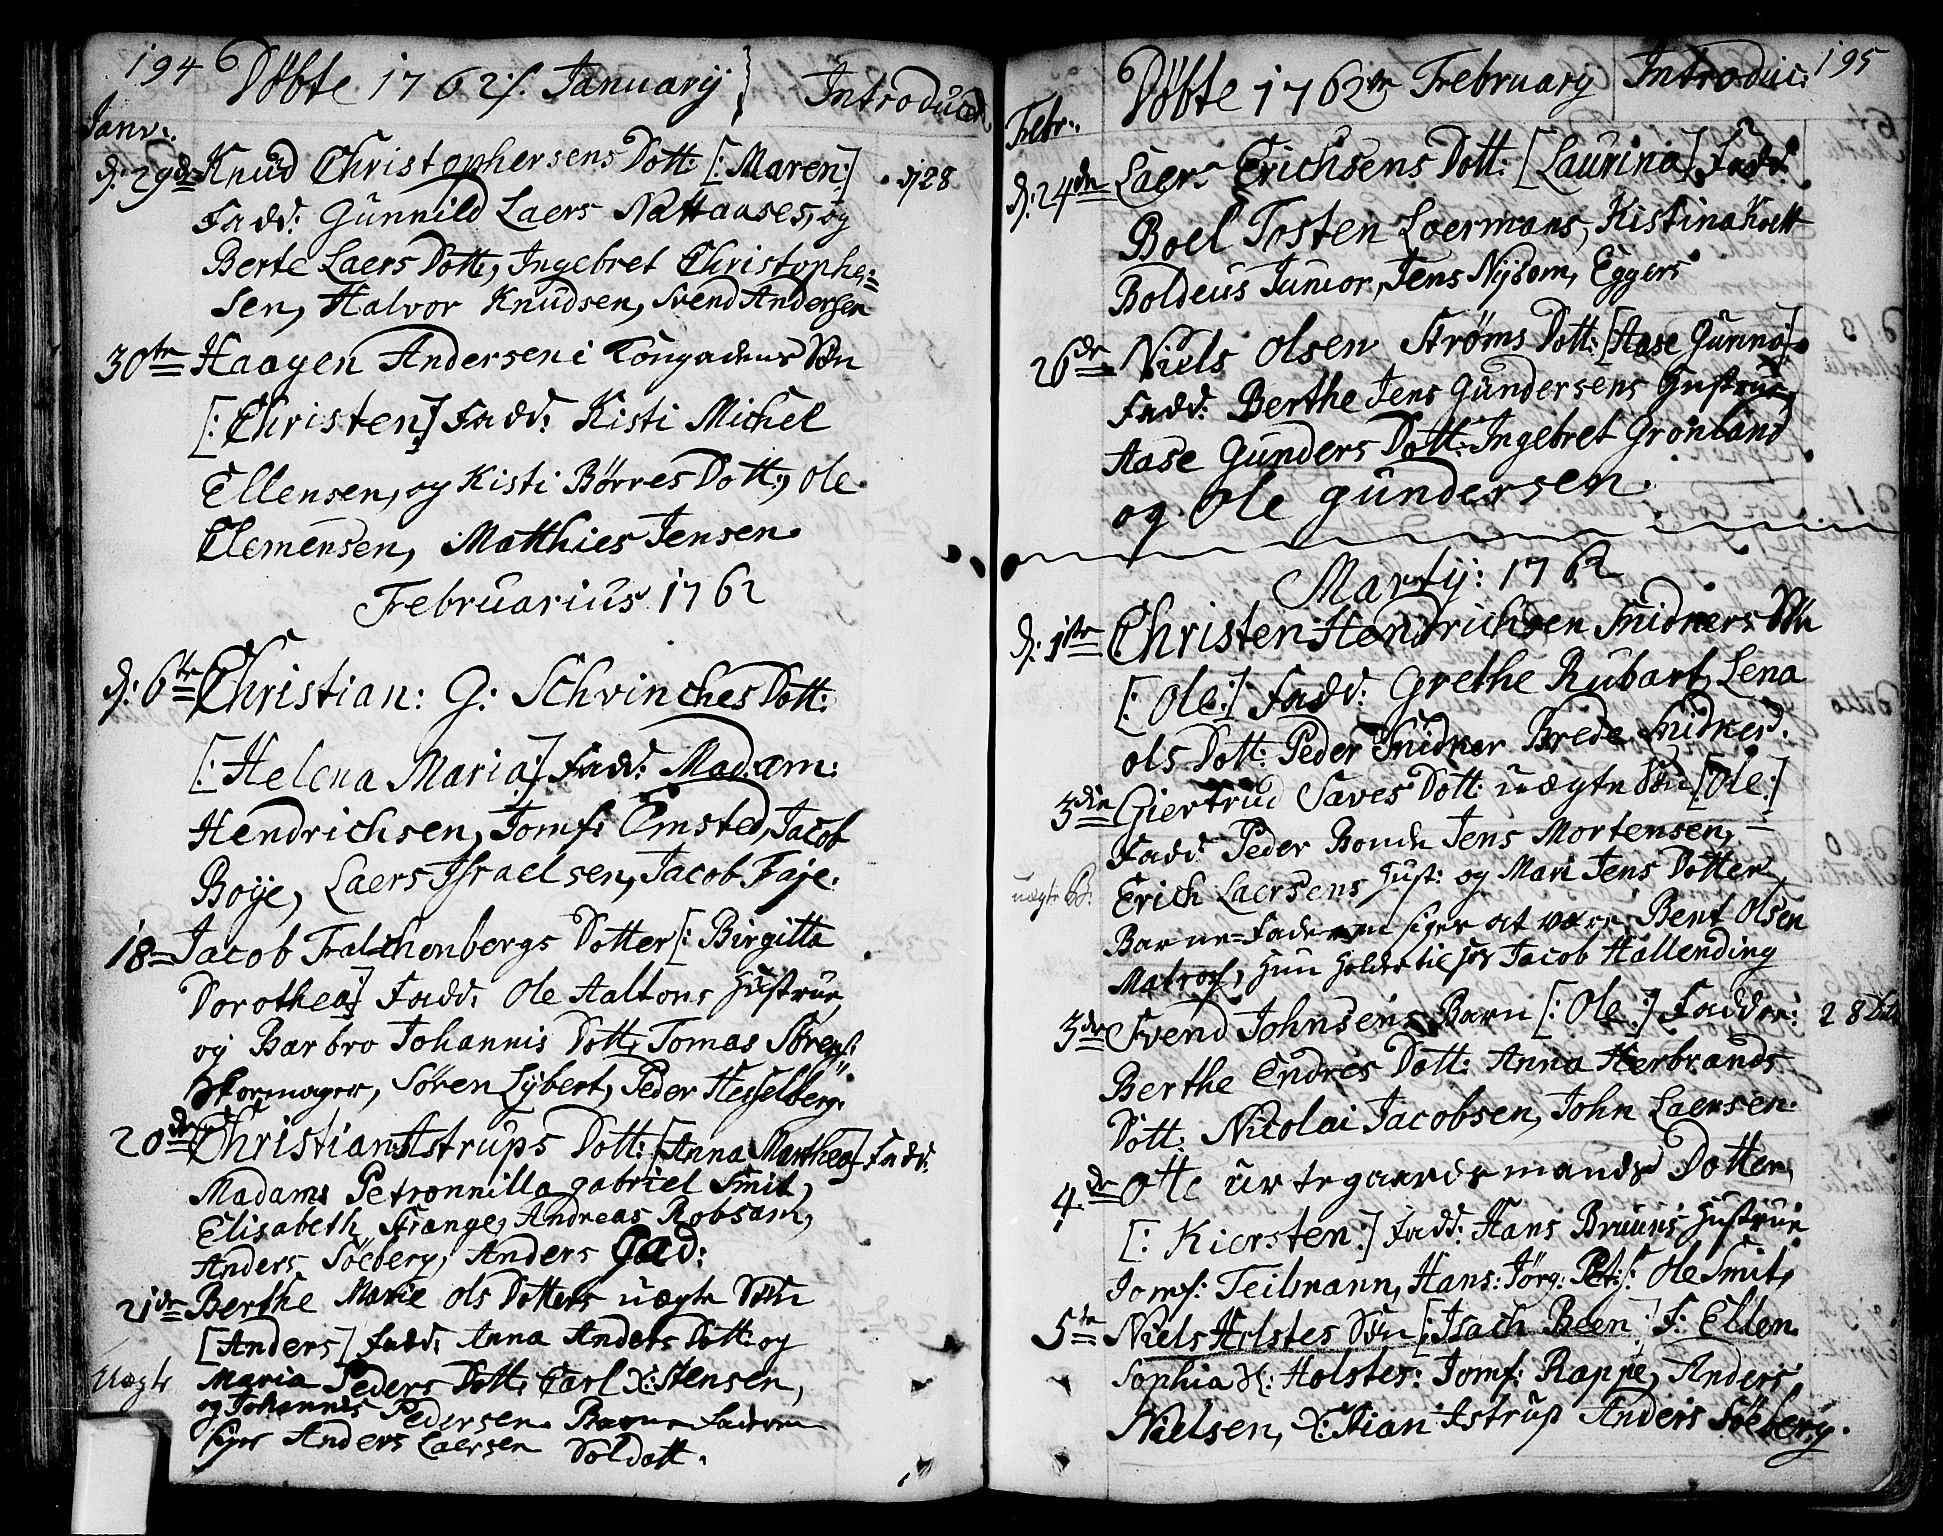 194 Döbte 1762: January Introduced
Janv:
d: 29de Knud Christophersens Dott: [: Maren:] d 28
Fadd: Gunnild Laers Nattauses, og
Berte Laers Dott:, Ingebret Christophe=
sen, Halvor Knudsen, Svend Andersen
30te Haagen Andersen i Söhn
[: Christen] Fadd: Kisti Michel
Ellensen, og Kisti Börres Dott:, Ole
Clemensen, Matthies Jensen
Februarius 1762
d: 6te Christian: G: Schvinches Dott:
[: Helena Maria:] Fadd: Madam:
Hendrichsen, Jomf: Emsted, Jacob
Boye, Laers Israelsen, Jacob Faje.
18 Jacob Dotter [: Birgitta
Dorothea] Fadd: Ole Aaltons Hustrue
og Barbro Johannis Dott, Tomas Sörens:
Skormager, Sören Lybert, Peder Hesselberg.
20de Christian Astrups Dott: [Anna Marthea] Fadd:
Madams Petronnilla gabriel Smit,
Elisabeth Strange, Andreas Robsam,
Anders Söeberg, Anders Gad:
21de Berthe Marie Ols Dotters uægte Söhn
[Anders] Fadd: Anna Anders Dott: og
Uægte Maria Peders Dott: Carl X:Stensen,
og Johannes Pedersen Barne Faderen
siges Anders Laersen Soldatt.
Döbte 1762 February Introduc: 195
Febr:
d: 24de Laers Erichsens Dott: [Laurina] Fadd:
Boel Tosten Loermans, Kistina
Boldeus Junior, Jens Nysom, Eggers
26de Niels Olsen Ströms Dott: [Aase Gunna]
Fadd: Berthe Jens Gundersens Hustrue,
Aase Gunders Dott: Ingebret Grönland
og Ole Gundersen.
Martij: 1762
d: 1ste Christen Hendrichsen Snidkers Söhn
[: Ole:] Fadd: Grethe Rubart, Lena
Ols Dott: Peder Snidker Brede Snidker.
3die Giertrud Saves Dott: uægte Sön [Ole:]
Fadd Peder Bonde Jens Mortensen,
uægte B: Erich Laersens Hust: og Mari Jens Dotter
Barne=Faderen siges at være Bent Olsen
Matros, Hun holder til hos Jacob Hallending
3de Svend Johnsens Barn [: Ole:] Fadder: 28
Berthe Endres Dott: Anna Herbrands
Dott: Nicolai Jacobsen, John Laersen.
4de Otte Urtegaardsmands Dotter,
[: Kiersten:] Fadd: Hans Bruuns Hustrue
Jomf: Teilmann, Hans: Jörg: Pet: Ole Smit,
5te Niels Holstes Sön [: Isach Been: F: Ellen
Sophia H: Holstes: Jomf: Rappe, Anders
Nielsen, X:Stian Astrup Anders Söeberg.